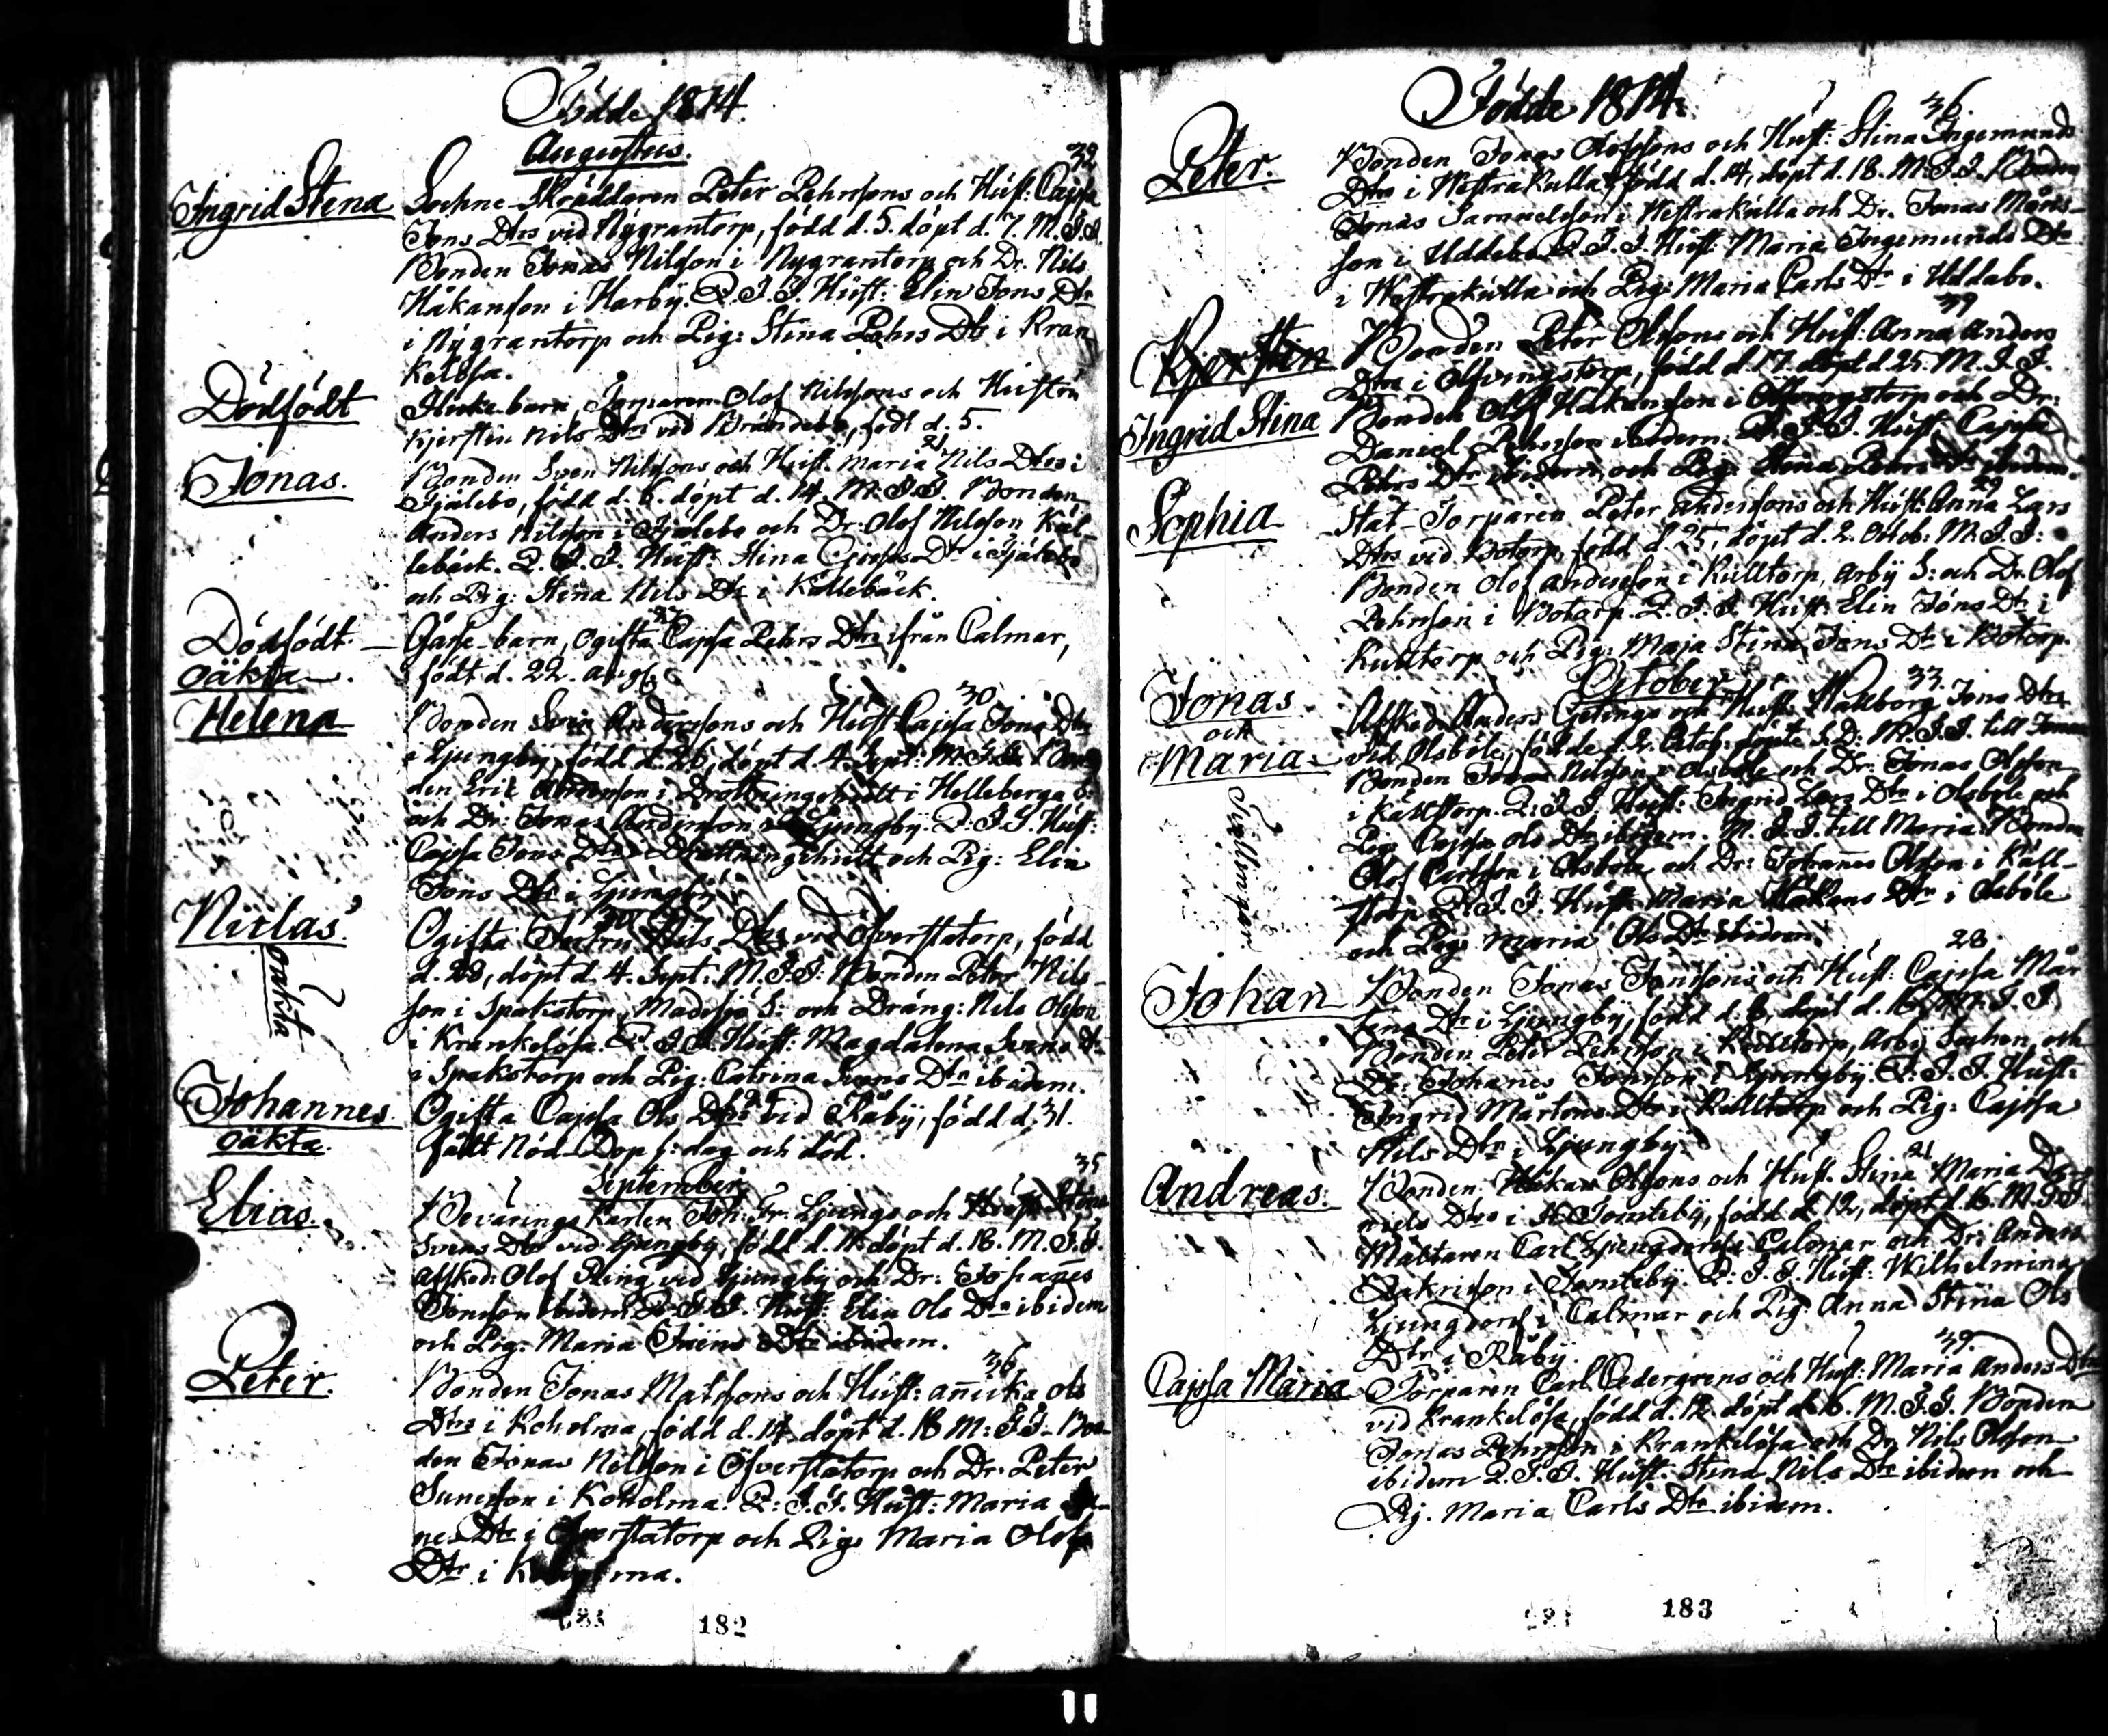 Födde 1814.
Augustus.
32
Ingrid Stena
Sochne-Skräddaren Peter Pehrsons och Hust: Cajsa
Jons Dtrs vid Nygrantorp, född d. 5. döpt d. 7. M. J. J.
Bonden Jonas Nilsson i Nygrantorp och Dr. Nils
Håkanson i Harby. Q. J. J. Hust: Elin Jons Dtr
i Nygrantorp och Pig: Stina Pehrs Dtr i Kran
kelösa.
Dödfödt
barn, Torparen Olof Nilssons och Hustru
Kjerstin Nils Dtrs vid Brändebo, född d. 5.
21
Jonas.
Bonden Sven Nilssons och Hust. Maria Nils Dtrs i
Fjälebo, född d. 6. döpt d. 14. M. J. J. Bonden
Anders Nilsson i Fjälebo och Dr: Olof Nilsson Käl-
lebäck. Q. J. J. Hust: Stina Dtr i Fjälebo
och Pig: Stina Nils Dtr i Källebäck.
Dödfödt
oäkta.
Gåsse-barn, ogifta Cajsa Pehrs Dtrs ifrån Calmar,
födt d. 22. aug.
30
Helena
Bonden Sven Anderssons och Hust Cajsa Jons Dtr
i Ljungby, född d. 26, döpt d. 4. Sept: M. J. J. Bon
den Eric Andersson i Drottningehult i Helleberga S:
och Dr: Jonas Andersson i Ljungby. Q: J. J. Hust:
Cajsa Jons Dtr i Drottningehult och Pig: Elin
Jons Dtr i Ljungby.
30
Niclas
oäkta
Ogifta Nils Dtrs vid Öfverstatorp, född
d. 28, döpt d. 4. Sept: M. J. J: Bonden Peter Nils-
son i Spakstorp, Madesjö S: och Dräng: Nils Olsson
i Krankelösa. Q. J. J. Hust: Magdalena Svens Dtr
i Spakstorp och Pig: Catrina Svens Dtr ibidem.
Johannes
oäkta.
Ogifta Cajsa Ols Dtrs vid Råby, född d: 31.
fått Nöd-Dop s: dag och död.
September
35
Elias.
Bevärings Karlen Joh: Fr: Ljungs och Hust
Svens Dtr vid Ljungby, född d. 11. döpt d. 18. M. J. J.
Afsked: Olof Sting vid Ljungby och Dr: Johannes
Jonsson ibidem. Q. J. J. Hust: Elin Ols Dtr ibidem
och Pig: Maria Dtr ibidem.
36
Peter.
Bonden Jonas Matssons och Hust: Annika Ols
Dtrs i Koholma, född d. 14 döpt d. 18 M: J J. Bon-
den Jonas Nilsson i Öfverstatorp och Dr. Peter
Sunesson i Koholma. Q: J. J. Hust: Maria Su-
nes Dtr i Öfverstatorp och Pig: Maria Olofs
Dtr i Koholma.
182
Födde 1814.
36.
Peter.
Bonden Jonas Olofsons och Hust: Stina Ingemunds
Dtrs i Westrakulla, född d. 14, döpt d. 18. M. J. J. Bonden
Jonas Samuelsson i Westrakulla och Dr. Jonas Mårts-
son i Uddabo Q. J. J. Hust: Maria Ingemunds Dtr
i Westrakulla och Pig: Maria Carls Dtr i Uddabo.
39
Kjerstin
Ingrid Stina
Bonden Peter Olssons och Hust: Anna Anders
Dtrs i Olfvingstorp, född d. 17. döpt d 25. M. J. J.
Bonden Olof Håkansson i Olfvingstorp och Dr:
Daniel Pehrsson ibidem. Q. J. J. Hust: Cajsa
Pehrs Dtr ibidem och Pig: Stina Pehrs Dtr ibidem.
29
Sophia
Stat-Torparen Peter Anderssons och Hust: Anna Lars
Dtrs vid Botorp, född d. 25, döpt d. 2. Octob: M. J. J:
Bonden Olof Andersson i Kulltorp, Arby S: och Dr. Olof
Pehrsson i Botorp. Q. J. J. Hust: Elin Jöns Dtr i
Kulltorp och Pig: Maja Stina Jons Dtr i Botorp.
October
33.
Jonas
och
Maria.
Tvillingar
Afsked. Anders Getings och Hust: Wallborg Jons Dtrs
vid Olsböle, födde d. 2. Octob. döpte s. D: M. J. J. till Jonas
Bonden Jonas Nilsson i Olsböle och Dr: Jonas Olsson
i Källstorp. Q: J. J. Hust: Ingrid Lars Dtr i Olsböle och
Pig: Cajsa Ols Dtr ibidem. M. J. J. till Maria: Bonden
Olof Carlsson i Olsböle och Dr: Johannes Olsson i Käll-
storp Q. J. J. Hust: Maria Håkans Dtr i Olsböle
och Pig: Maria Ols Dtr ibidem.
28.
Johan
Bonden Jonas Jonssons och Hust: Cajsa Mår
tens Dtr i Ljungby, född d. 8, döpt d. M. J. J
Bonden Peter Pehrsson i Kulltorp, Arby Sochen, och
Dr: Johanes Jonsson i Ljungby. Q: J. J. Hust:
Ingrid Mårtens Dtr i Kulltorp och Pig: Cajsa
Nils Dtr i Ljungby.
21
Andreas.
Bonden Håkan Olssons och Hust. Stina Maria Da-
niels Dtrs i St. Tomteby, född d. 12, döpt d. 16. M. J. J
Mältaren Carl Ljungdorf i Calmar och Dr: Anders
Zakrisson i Tomteby. Q: J. J. Hust: Wilhelmina
Ljungdorf i Calmar och Pig: Anna Stina Ols
Dtr i Råby.
39.
Cajsa Maria
Torparen Carl Cedergrens och Hust: Maria Anders Dtrs
vid Krankelösa, född d. 12. döpt d. 16. M. J. J. Bonden
Jonas Pehrsson i Krankelösa och Dr. Nils Olsson
ibidem Q. J. J. Hust. Stina Nils Dtr ibidem och
Pig. Maria Carls Dtr ibidem.
183